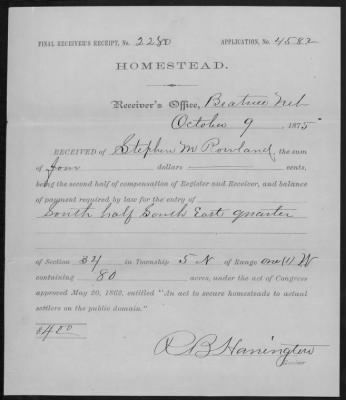 FINAL RECEIVER'S RECEIPT, No. 2280 APPLICATION, No. 4582
HOMESTEAD.
Receiver's Office, Beatrice Neb
October 9 1875
RECEIVED of Stephen M Rowland, the sum
of four dollars cents,
being the second half of compensation of Register and Receiver, and balance
of payment required by law for the entry of
South half South East quarter
of Section 34 in Township 5 N of Range one (1) W
containing 80 acres, under the act of Congress
approved May 20, 1862, entitled "An act to secure homesteads to actual
settlers on the public domain."
$4.00
R B Harrington